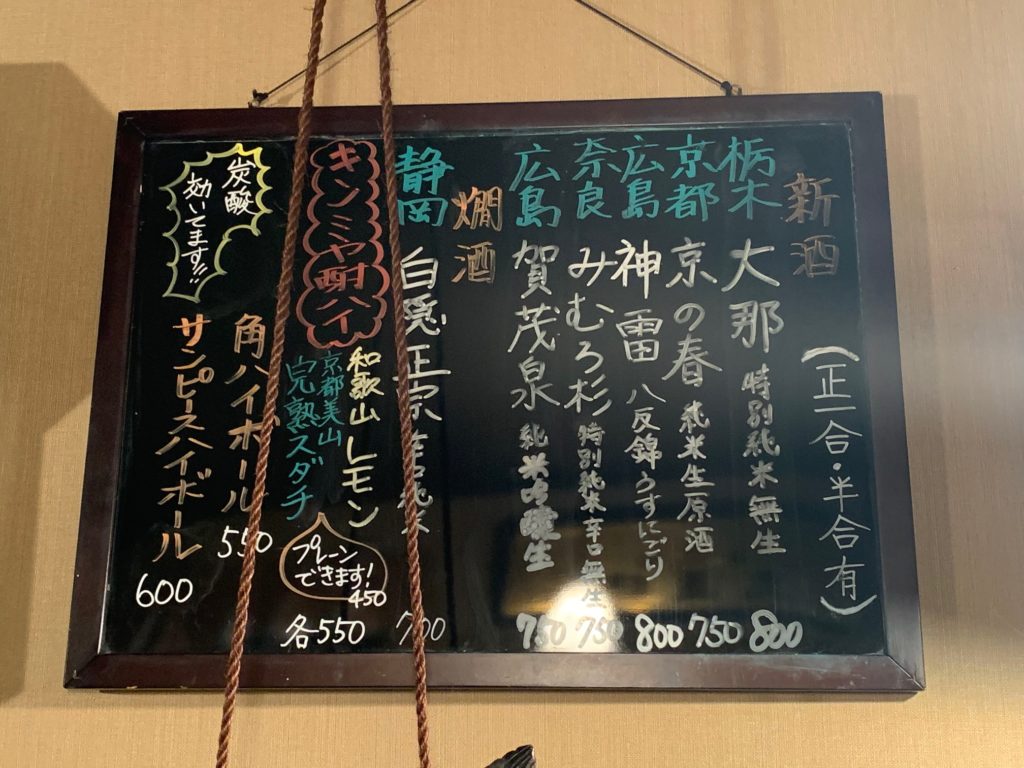 新酒
(正一合・半合有)
栃木 大那 特別純米無生 800
京都 京の春 純米生原酒 750
広島 神雷 八反錦うすにごり 800
奈良 みむろ杉 特別純米辛口無生 750
広島 賀茂泉 純米吟醸生 750
燗酒
静岡 白隠正宗 純米 700
キンミヤ酎ハイ
和歌山レモン
京都美山
完熟スダチ
プレーン
できます!
450
各550
角ハイボール 550
サンピースハイボール 600
炭酸
効いてます!!